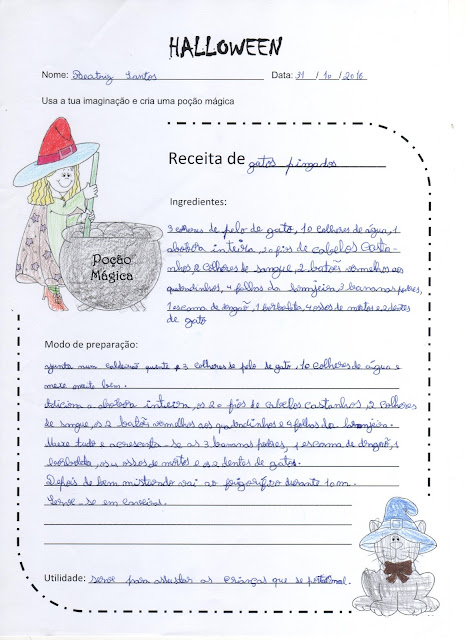 HALLOWEEN
Nome: Beatriz Santos Data: 31 / 10 / 2016
Usa a tua imaginação e cria uma poção mágica
Receita de gatos pingados
Ingredientes:
3 colheres de pelo de gato, 10 colheres de água, 1
abobora inteira, 20 fios de cabelos casta-
nhos, 2 colheres de sangue, 2 batões vermelhos aos
quadradinhos, 4 folhas da laranjeira, 2 bananas podres,
1 escama de dragão, 1 borboleta, 4 ossos de mortos e 2 dentes
de gato
Poção
Mágica
Modo de preparação:
Junta num caldeirão quente 3 colheres de pelo de gato, 10 colheres de água e
mexe muito bem.
Adiciona a abobora inteira, os 20 fios de cabelos castanhos, 2 colheres
de sangue, os 2 batão vermelhos aos quadradinhos e 4 folhas da laranjeira.
Mexe tudo e acrescenta-se as 3 bananas podres, 1 escama de dragão, 1
borboleta, os 4 ossos de mortos e os 2 dentes de gatos.
Depois de bem misturado vai ao frigorífico durante 10m.
Serve-se em
Utilidade: serve para assustar as crianças que se portam mal.